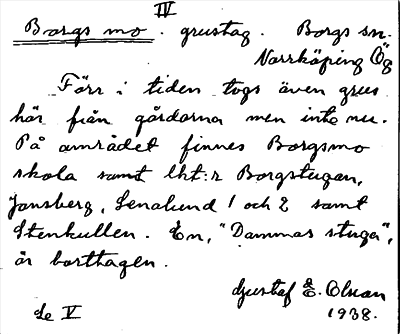 IV
Borgs mo. grustag. Borgs sn.
Norrköping Ög
Förr i tiden togs även grus
här från gårdarna men inte nu.
På området finnes Borgsmo
skola samt lht:r Borgstugan,
Jonsberg, Lenalund 1 och 2 samt
Stenkullen. En, "Dammas stuga",
är borttagen.
Gustaf E. Olsson
1938.
se V